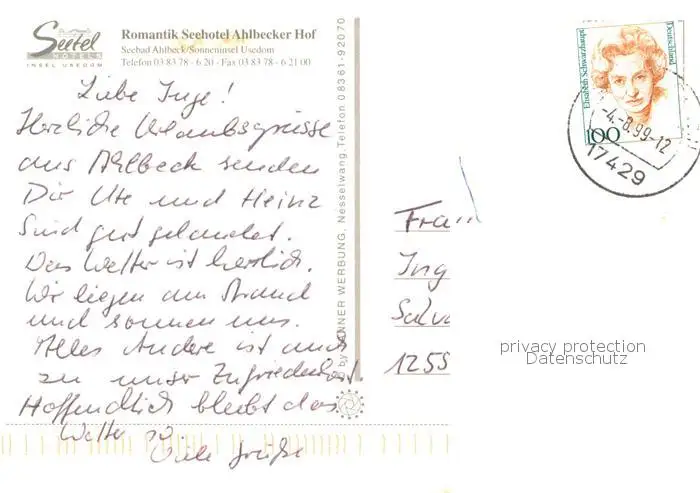 Seetel
HOTELS
INSEL USEDOM
Romantik Seehotel Ahlbecker Hof
Seebad Ahlbeck/Sonneninsel Usedom
Telefon 03 83 78 - 6 20 - Fax 03 83 78 - 6 21 00
Liebe Inge!
Herzliche Urlaubsgrüsse
aus Ahlbeck senden
Dir Ute und Heinz
Sind gut gelandet.
Das Wetter ist herrlich.
Wir liegen am Strand
und sonnen uns.
Alles Andere ist auch
zu unser Zufriedenheit
Hoffendlich bleibt das
Wetter so.
Viele Grüße
by WERBUNG, Nesselwang, Telefon 08361-92070
Elisabeth Schwarzhaupt
Deutschland
100
-4.-8.99-12
17429
Frau
Ing
Salv
1255
privacy protection
Datenschutz